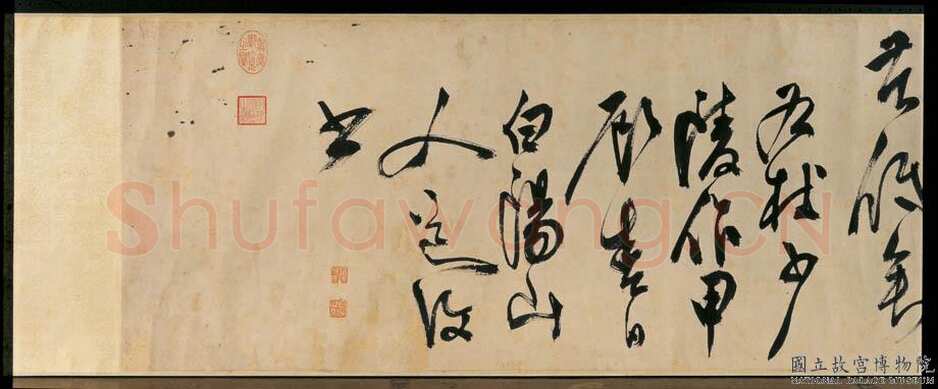 苦低垂
右杜少
陵作甲
辰春日
白陽山
人道復
書
Shufawang.CN
國立故宮博物院
NATIONAL PALACE MUSEUM